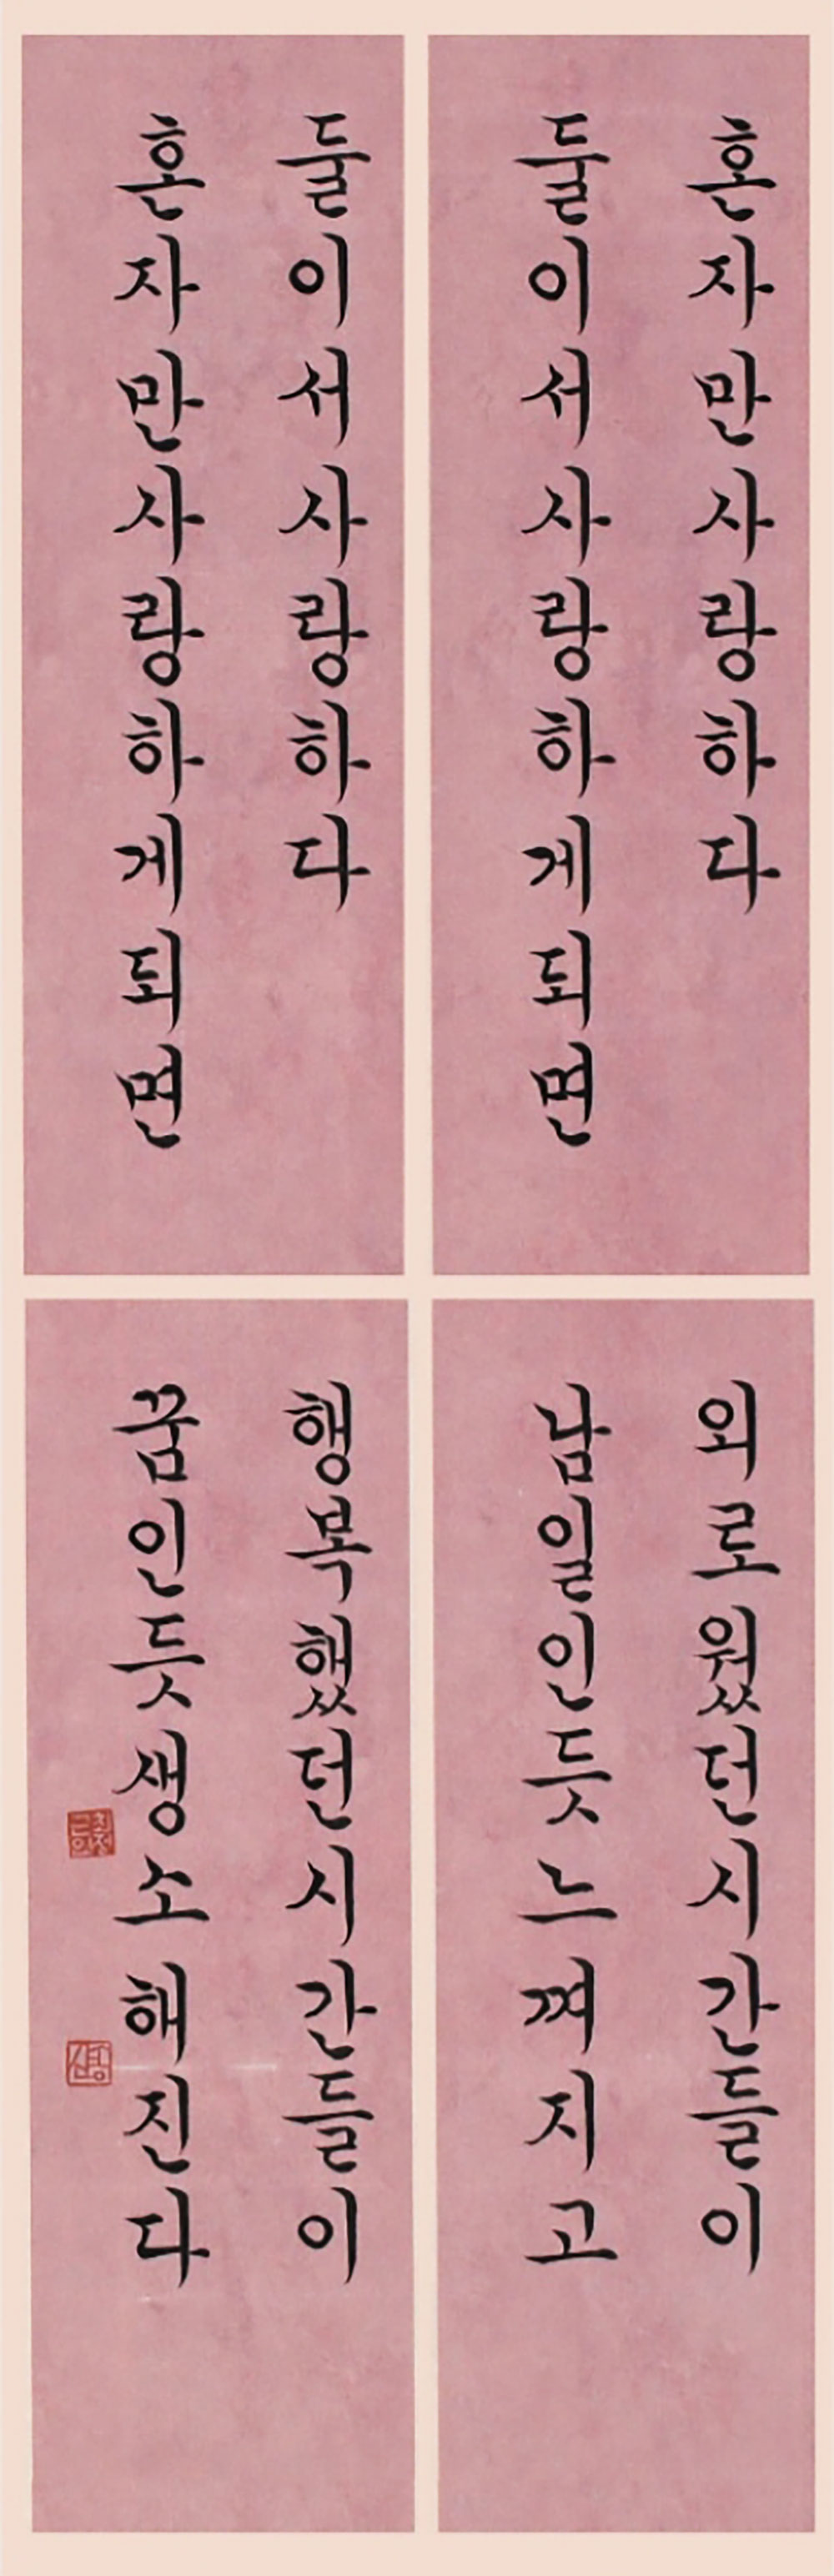 혼자만사랑하다
둘이서사랑하게되면
외로웠던시간들이
남일인듯느껴지고
둘이서사랑하다
혼자만사랑하게되면
행복했던시간들이
꿈인듯생소해진다